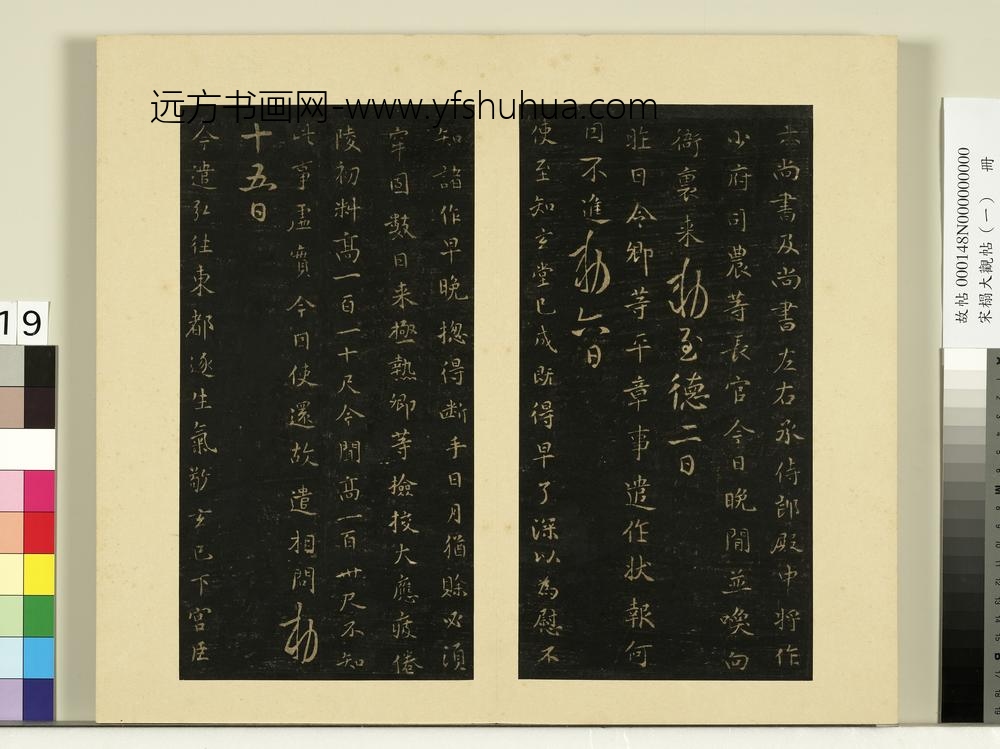 远方书画网-www.yfshuhua.com
尚書及尚書左右丞侍郎殿中將作
少府司農等長官今日晚間並喚向
衙裏来勅至德二日
昨日令卿等平章事遣作狀報何
因不進勅六日
使至知玄堂已成既得早了深以為慰不
知諸作早晚揔得斷手日月猶賒必須
牢固數日来極熱卿等撿挍大應疲倦
陵初料高一百一十尺今聞高一百卅尺不知
此事虛實今因使還故遣相問勅
十五日
今遣弘往東都逐生氣敬玄已下宮臣
故帖 000148N000000000
宋搨大觀帖（一） 冊
19